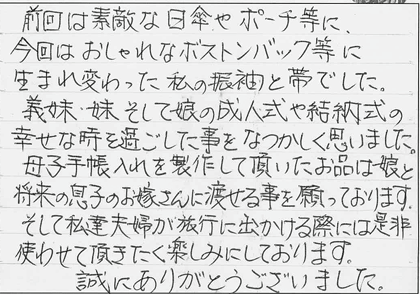 前回は素敵な日傘やポーチ等に、
今回はおしゃれなボストンバック等に
生まれ変わった私の振袖と帯でした。
義妹・妹そして娘の成人式や結納式の
幸せな時を過ごした事をなつかしく思いました。
母子手帳入れを製作して頂いたお品は娘と
将来の息子のお嫁さんに渡せる事を願っております。
そして私達夫婦が旅行に出かける際には是非
使わせて頂きたく楽しみにしております。
誠にありがとうございました。